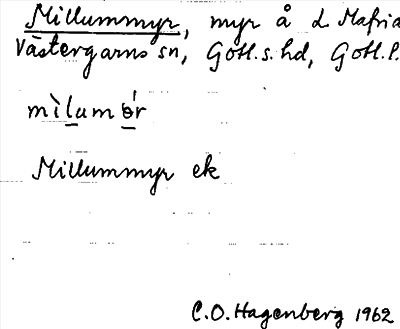 Millummyr, myr å L Mafrids
Västergarns sn, Gotl.s.hd, Gotl.l.
mìlumɵ́r
Millummyr ek
C.O.Hagenberg 1962